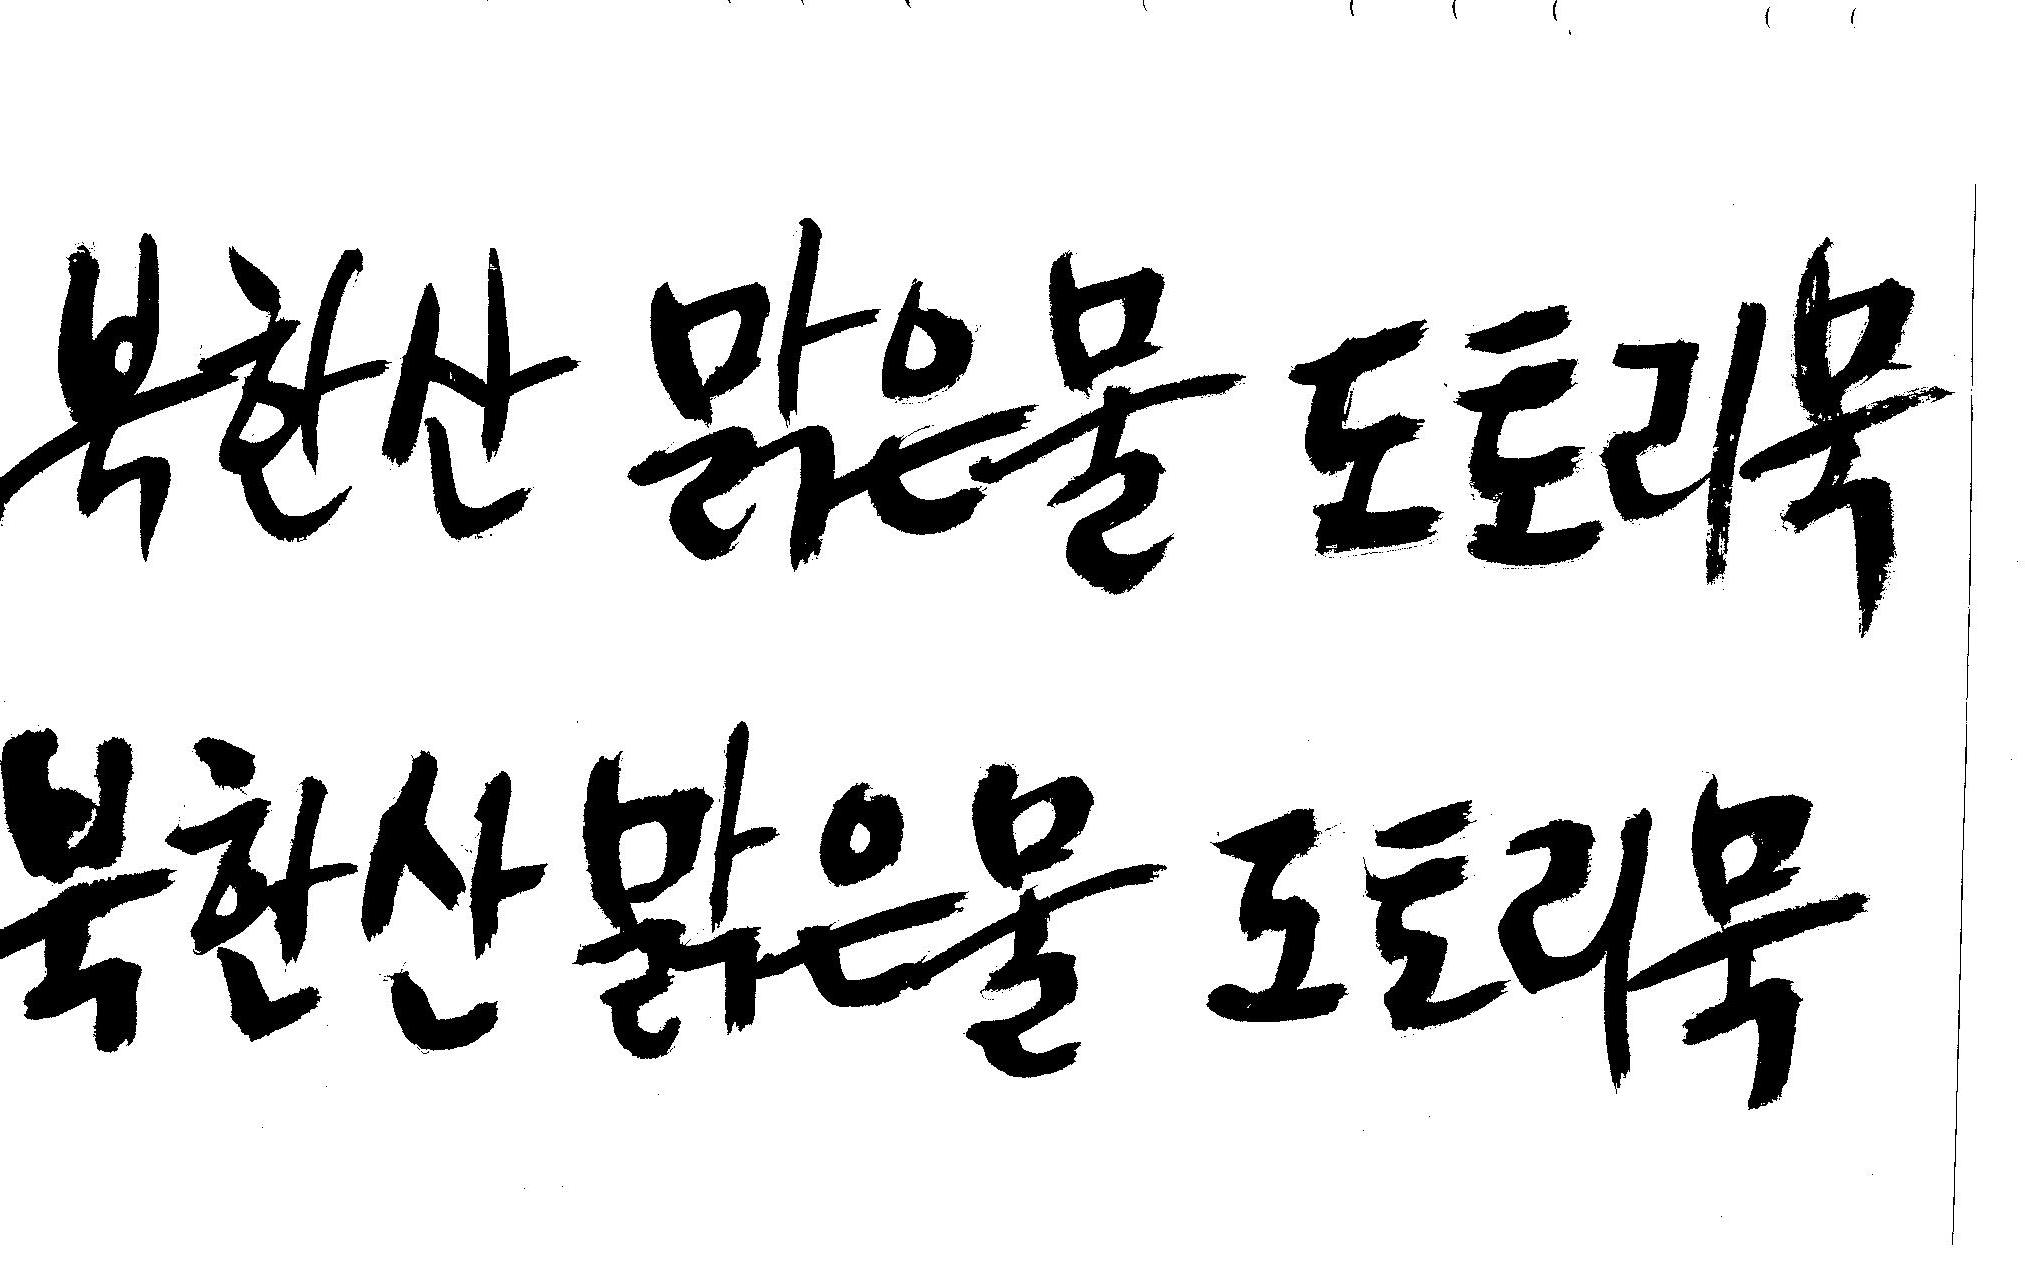 북한산 맑은물 도토리묵
북한산 맑은물 도토리묵